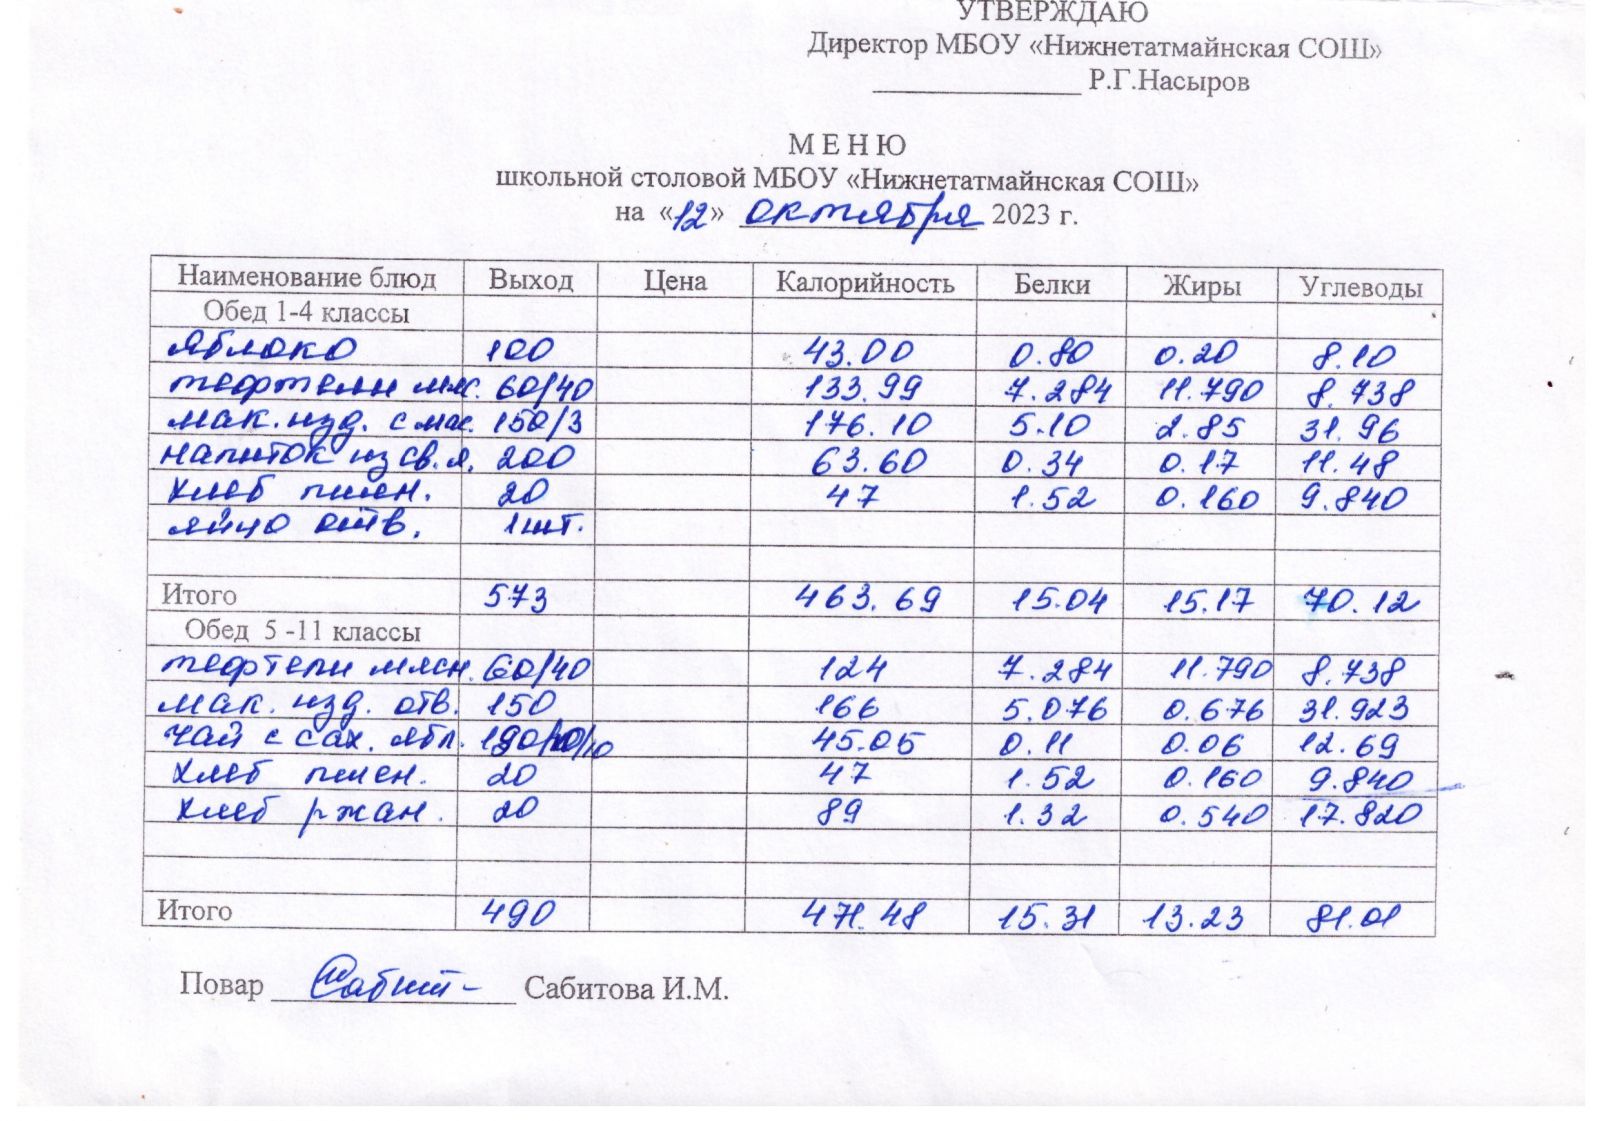 УТВЕРЖДАЮ
Директор МБОУ «Нижнетатмайнская СОШ»
_______________ Р.Г.Насыров
М Е Н Ю
школьной столовой МБОУ «Нижнетатмайнская СОШ»
на «12» октября 2023 г.
Наименование блюд Выход Цена Калорийность Белки Жиры Углеводы
Обед 1-4 классы
яблоко 100 43.00 0.80 0.20 8.10
тефтели мяс. 60/40 133.99 7.284 11.790 8.738
мак. изд. с мас. 150/3 176.10 5.10 2.85 31.96
напиток из св.я. 200 63.60 0.34 0.17 11.48
хлеб пшен. 20 47 1.52 0.160 9.840
яйцо отв. 1шт.
Итого 573 463.69 15.04 15.17 70.12
Обед 5 -11 классы
тефтели мясн. 60/40 124 7.284 11.790 8.738
мак. изд. отв. 150 166 5.076 0.676 31.923
чай с сах. ябл. 190/10/10 45.05 0.11 0.06 12.69
хлеб пшен. 20 47 1.52 0.160 9.840
хлеб ржан. 20 89 1.32 0.540 17.820
Итого 490 471.48 15.31 13.23 81.01
Повар Сабит- Сабитова И.М.